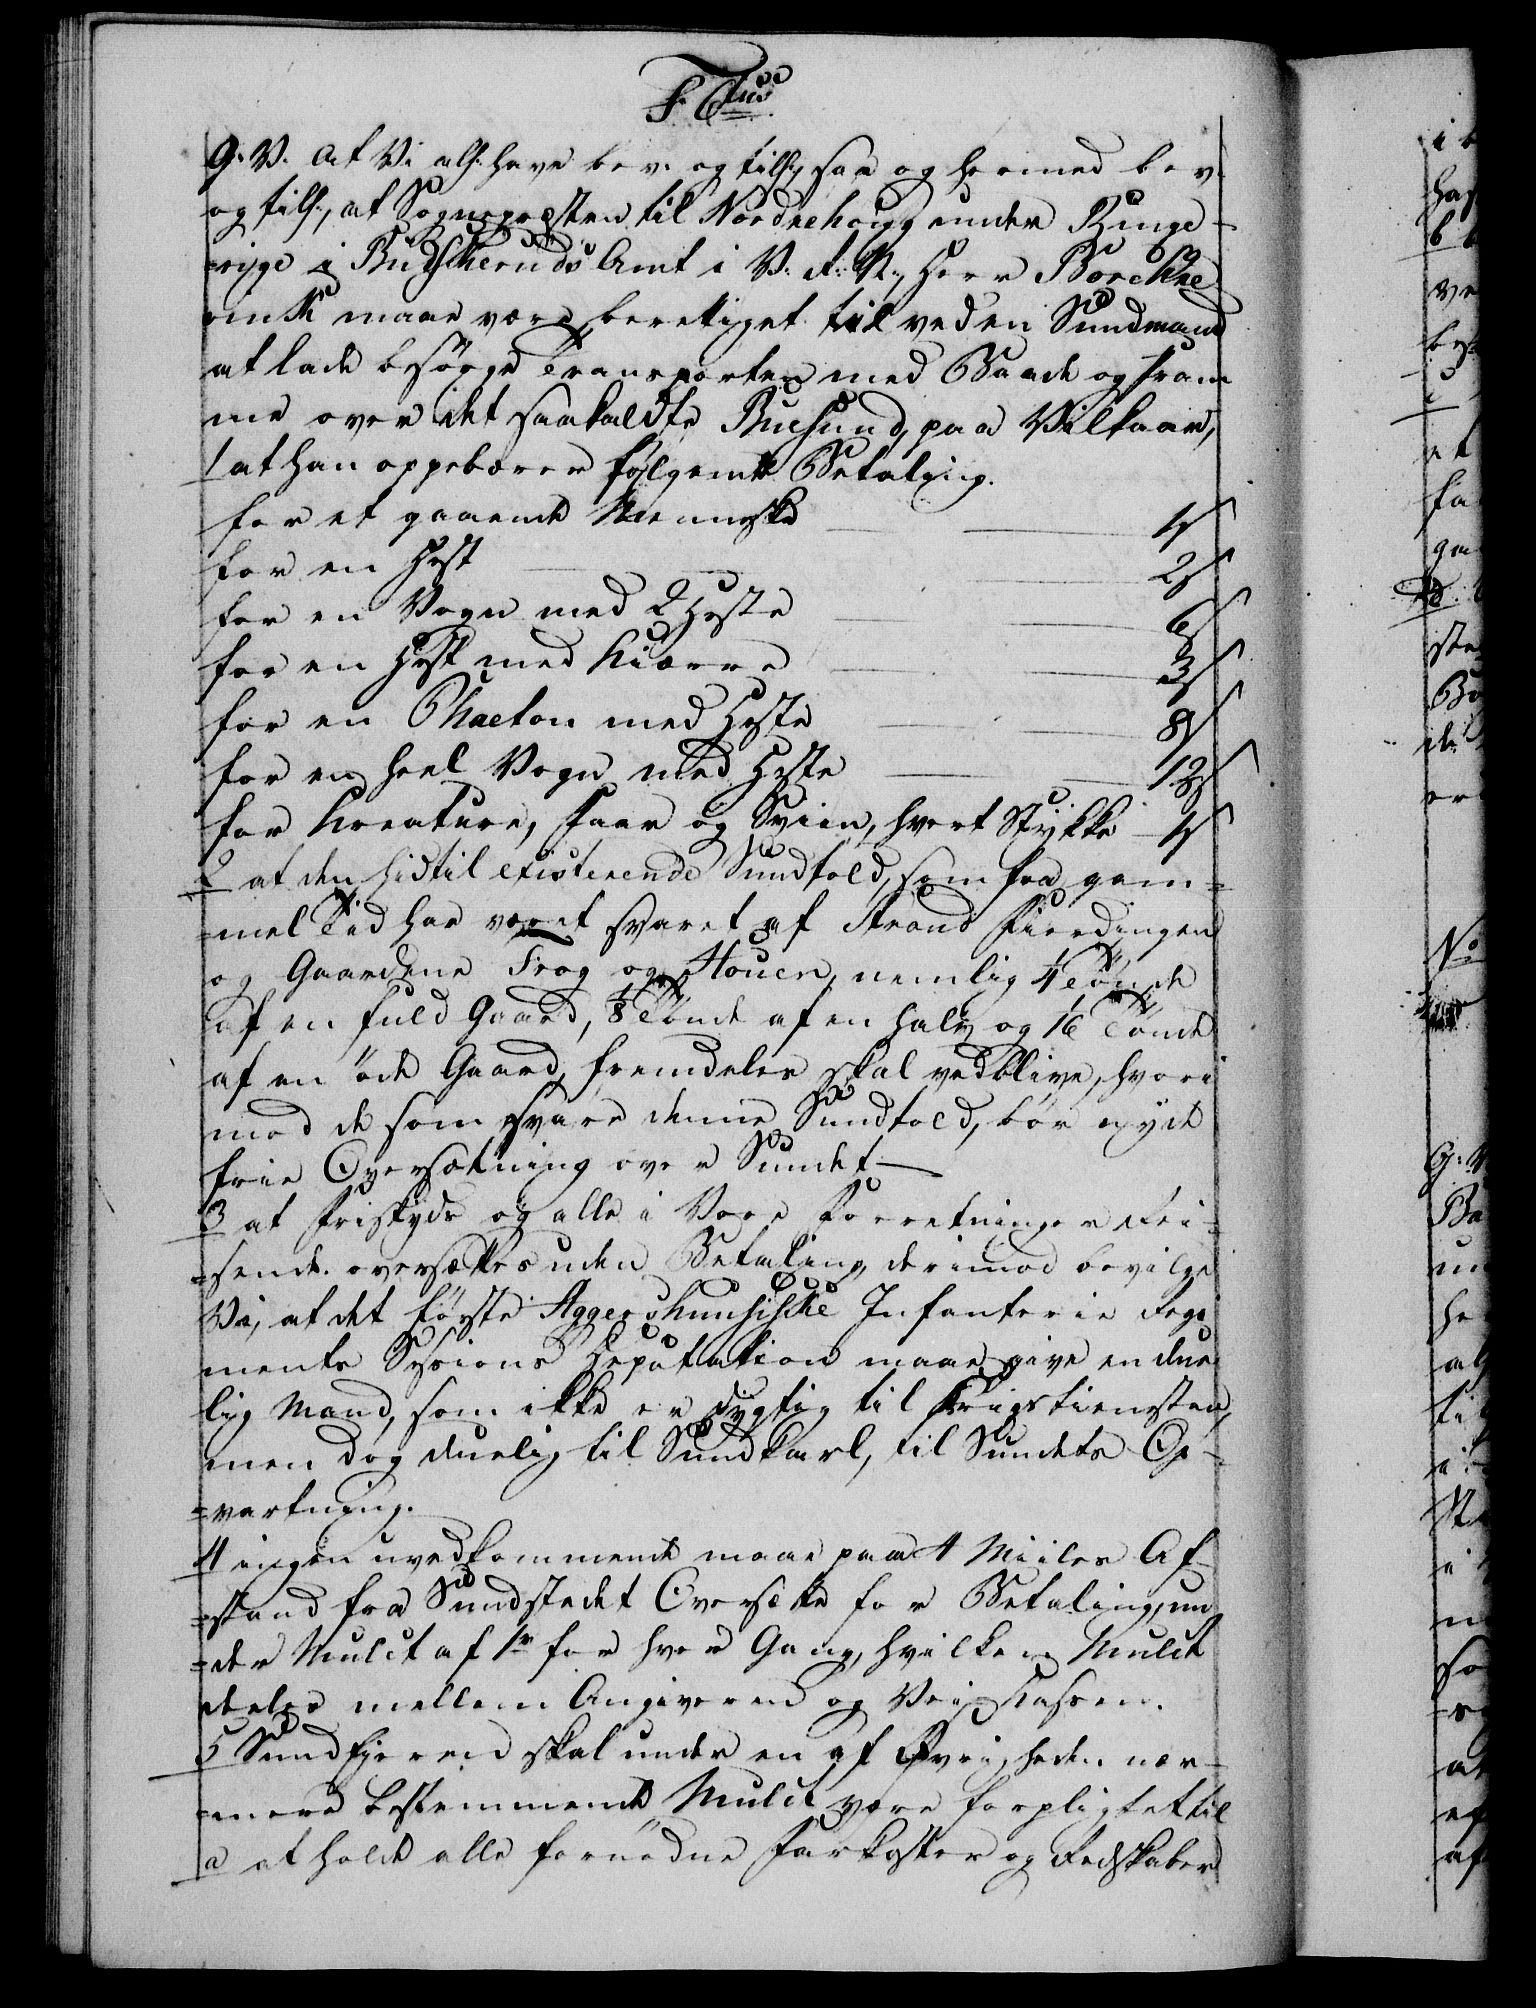 F. 6tus
G: V. at Vi allr: have bev: og tillt: saa og hermed bev:
og till:, at Sognepræsten til Nordrehoug under Ringe-
=rige i Budscheruds Amt i V: R: N:, Herr Borchre-
vinck maae være berettiget til ved en Sundmand
at lade besörge Transporten med Baade og Pram-
me over det saakaldte Buesund, paa Vilkaar,
1 at han oppebærer følgende Betaling.
for et gaaende Menneske 1 s
for en Hest 2 s
for en Vogn med 2 Heste 6 s
for en Hest med Kiærre 3 s
for en Phaeton med Heste 8 s
for en heel Vogn med Heste 12 s
for Kreature, Faar og Sviin, hvert Stykke 1 s
2 at den hidtil existerende Sundtold, som fra gam-
=mel Tid har været svaret af Strand Fierdingen
og Gaardene Frog og Houen, nemlig 1/4 Tönde
af en fuld Gaard, 1/8 Tönde af en halv og 1/16 Tönde
af en öde Gaard, fremdeles skal vedblive, hvori-
mod de som svare denne Sundtold, bör nyde
frie Oversætning over Sundet
3 at Friskyds og alle i Vore Forretninger Rei-
=sende oversættes uden Betaling, derimod bevilge
Vi, at det første Aggershuusiske Infanterie Regi-
ments Sessions Deputation maae give en due-
lig Mand, som ikke er dygtig til Krigstienesten,
men dog duelig til Sundkarl, til Sundets Op-
=vartning.
4 ingen uvedkommende maae paa 1/4 Miiles Af-
=stand fra Sundstedet Oversætte for Betaling, un-
=der Mulct af 1 rd for hver Gang, hvilken Mulct
deeles mellem Angiveren og Vei Kassen.
5 Sundfæreren skal under en af Øvrigheden nær-
=mere bestemmende Mulct være forpligtet til
a at holde alle fornödne Farkoster og Redskaber